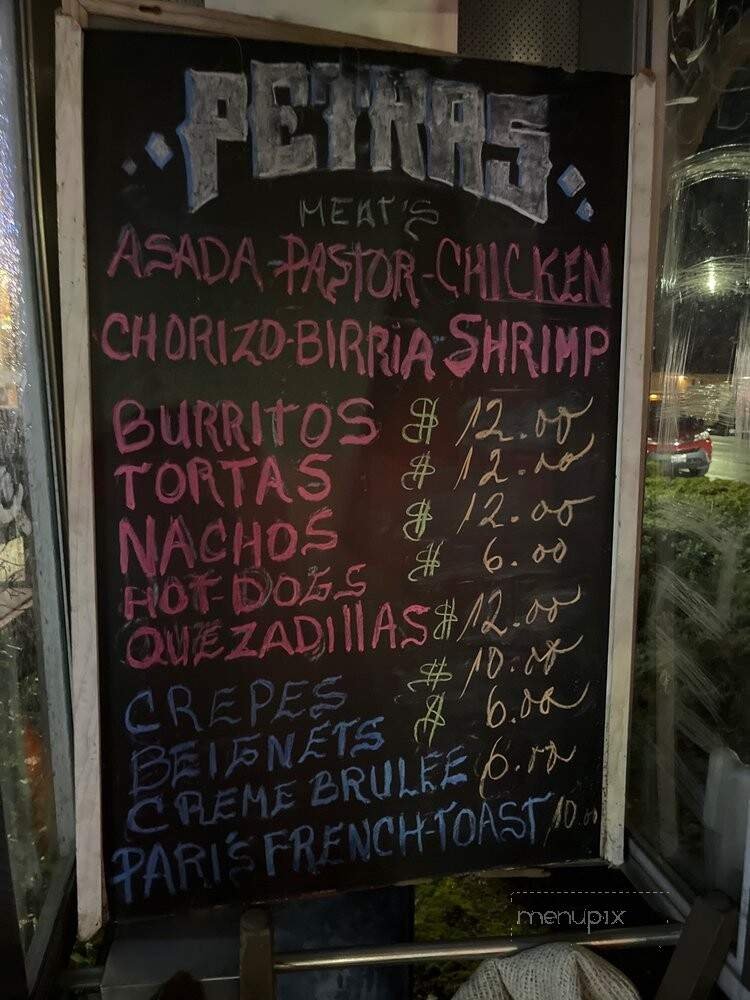 PETRAS
MEAT'S
ASADA-PASTOR-CHICKEN
CHORIZO-BIRRIA SHRIMP
BURRITOS $ 12.00
TORTAS $ 12.00
NACHOS $ 12.00
HOT-DOGS $ 6.00
QUEZADILLAS $ 12.00
CREPES $ 10.00
BEIGNETS $ 6.00
CREME BRULEE 6.00
PARI'S FRENCH-TOAST 10.00
menupix